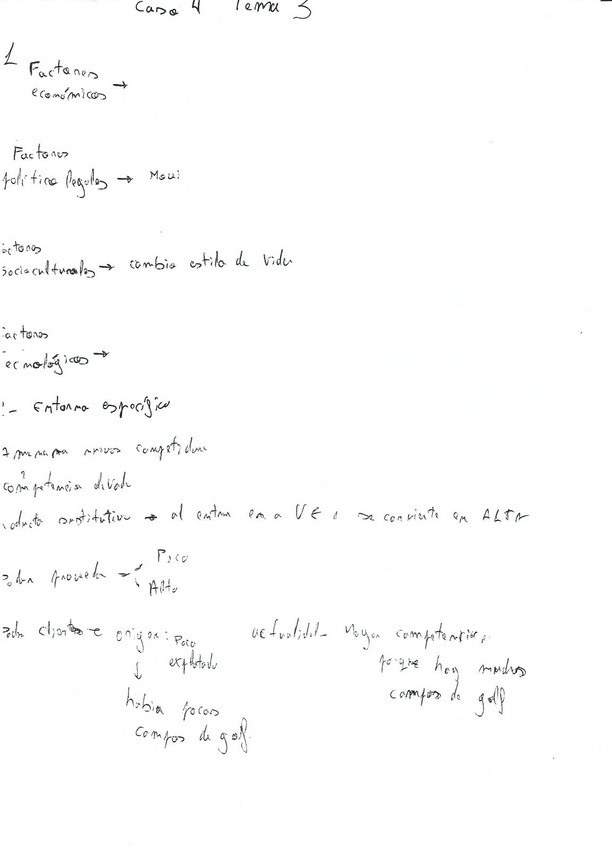 Caso 4 Tema 3
1 Factores
económicos →
Factores
político legales →
actores
socioculturales → cambio estilo de vida
actores
ecnológicos →
- Entorno específico
nuevos competidores
competencia
producto sustitutivo → al entrar en a VE se convierte en ALTA
Poco
Alto
origen: Poco actualidad - Mayor competencia
explotado porque hay muchos
↓ campos de golf
había pocos
campos de golf